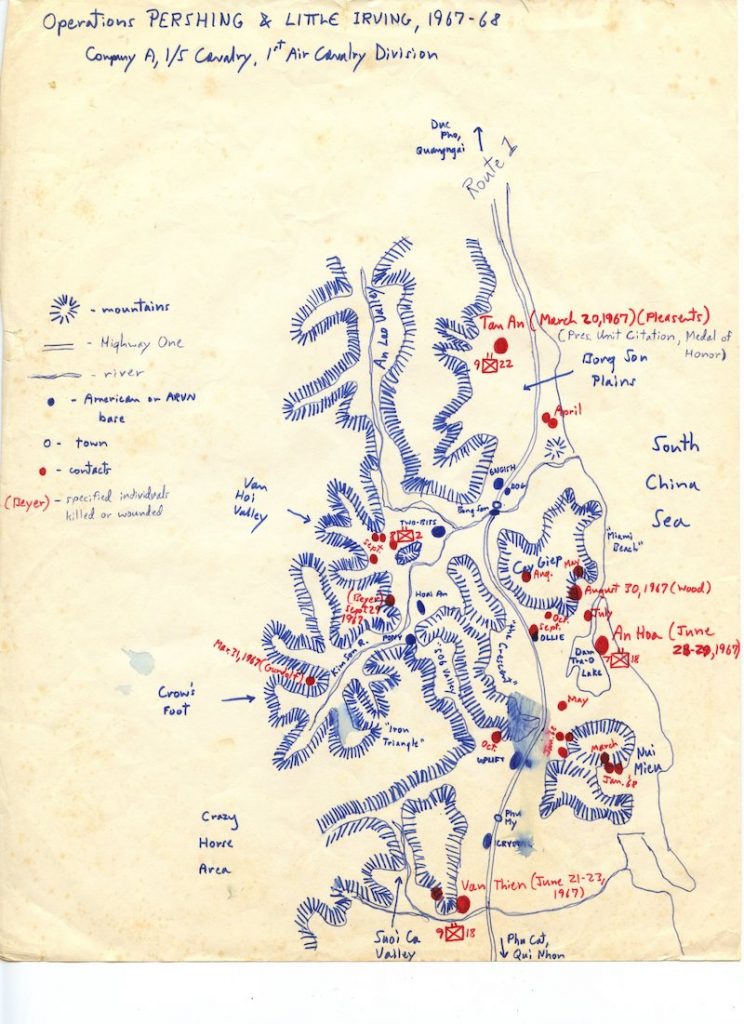 Operations PERSHING & LITTLE IRVING, 1967-68
Company A, 1/5 Cavalry, 1st Air Cavalry Division
Duc
Pho,
Quangngai
Route 1
- mountains
- Highway One
- river
- American or ARVN
base
- town
- contacts
(Beyer) - specified individuals
killed or wounded
An Lao Valley
Tan An (March 20, 1967) (Pleasents)
(Pres. Unit Citation, Medal of
Honor)
9 22
Bong Son
Plains
April
South
China
Sea
ENGISH
DOG
Bong Son
Van
Hoi
Valley
TWO-BITS
Sept.
8 2
"Miami
Beach"
Cay Giep
May
Aug.
August 30, 1967 (Wood)
(Beyer)
Sept 29
1967
Hoai An
"The Crescent"
July
Oct.
Sept.
OLLIE
An Hoa (June
28-29, 1967)
7 18
Dam
Tra-O
Lake
PONY
Kim Son R.
506 Valley
Mar. 31, 1967 (Gundolf)
Crow's
Foot
"Iron
Triangle"
May
Oct.
Jan. 68
UPLIFT
March
Nui
Mieu
Jan. 68
Crazy
Horse
Area
Phu
My
CRYSTAL
Van Thien (June 21-23,
1967)
9 18
Suoi Ca
Valley
Phu Cat,
Qui Nhon